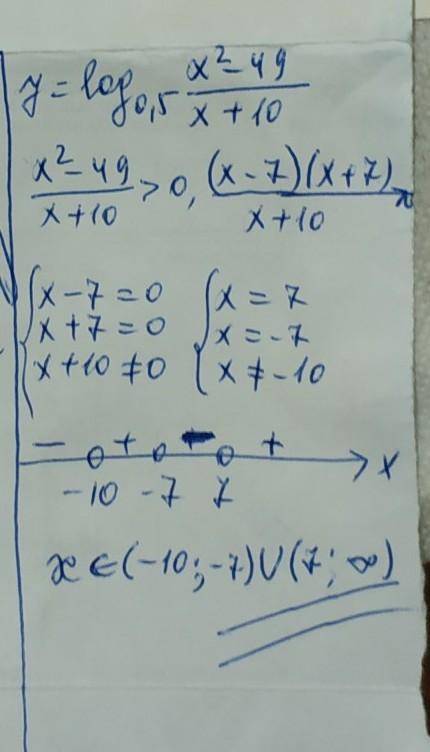 y = log₀,₅ (x² - 49)/(x + 10)
(x² - 49)/(x + 10) > 0, (x - 7)(x + 7)/(x + 10)
{ x - 7 = 0 { x = 7
x + 7 = 0 x = -7
x + 10 ≠ 0 x ≠ -10
- + - + x
-10 -7 7
x ∈ (-10; -7) ∪ (7; ∞)